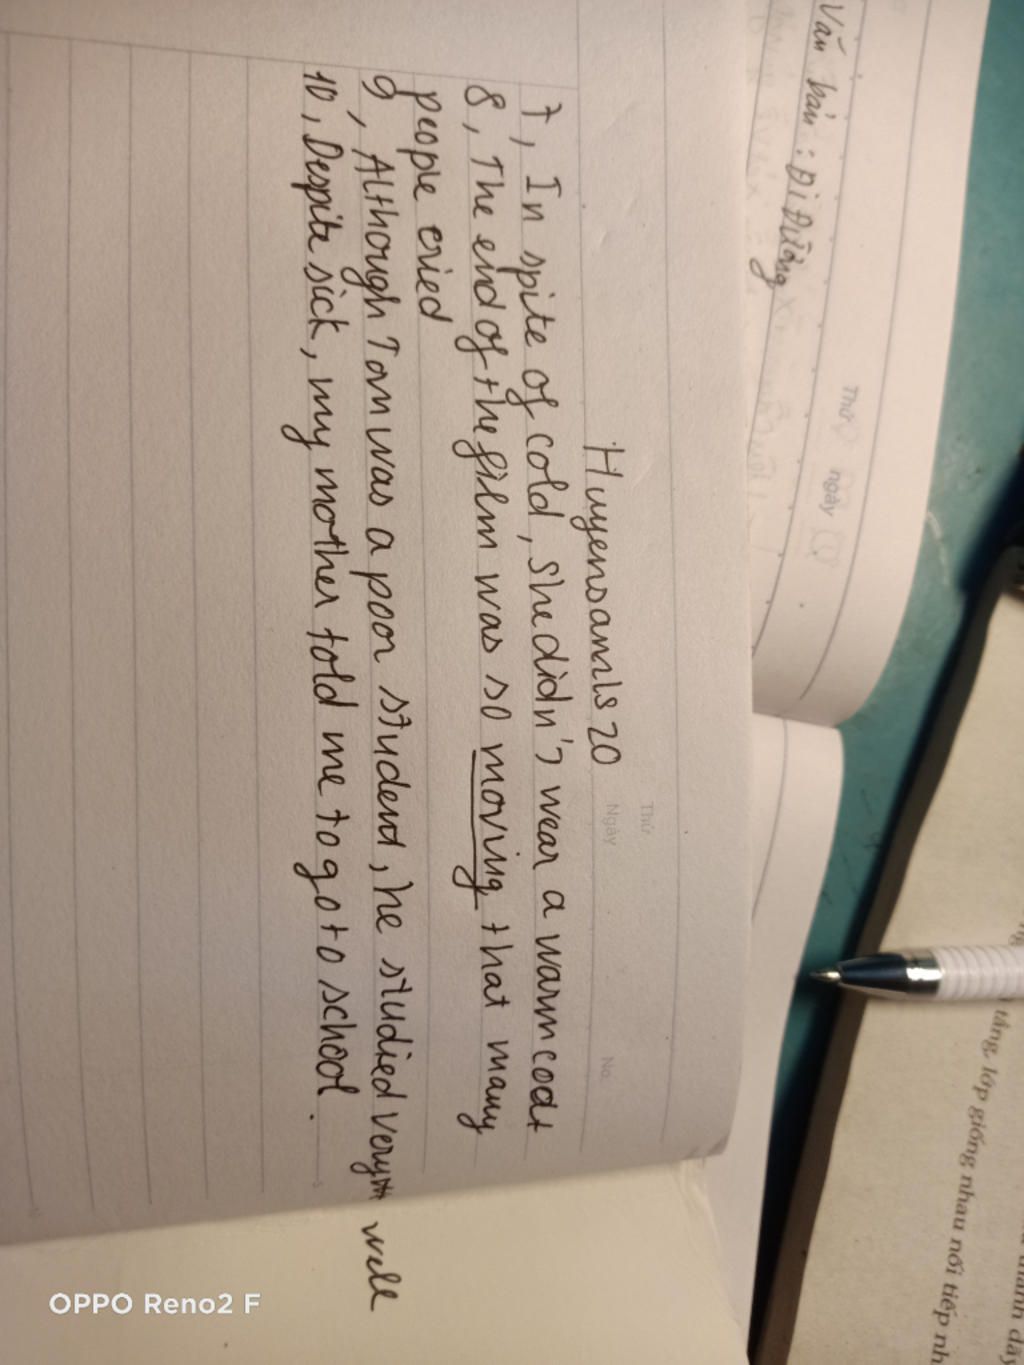 Văn bản : Đi Đường
Thứ ngày
Thứ
Ngày
No.
Huyensamls 20
7, In spite of cold, she didn't wear a warm coat
8, The end of the film was so moving that many
people cried
9, Although Tom was a poor student, he studied very well
10, Despite sick, my mother told me to go to school.
tầng, lớp giống nhau nối tiếp nh
thành dãy
OPPO Reno2 F